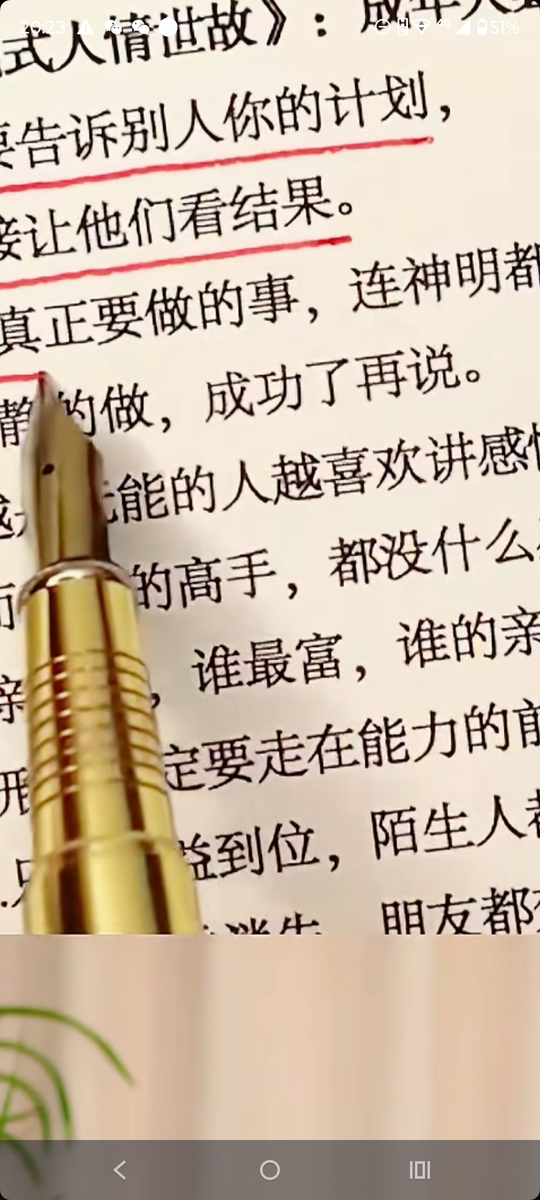 20:23
51%
式人情世故》：成年人
告诉别人你的计划，
接让他们看结果。
真正要做的事，连神明都
静的做，成功了再说。
能的人越喜欢讲感
的高手，都没什么
，谁最富，谁的亲
定要走在能力的前
益到位，陌生人都
消失，朋友都